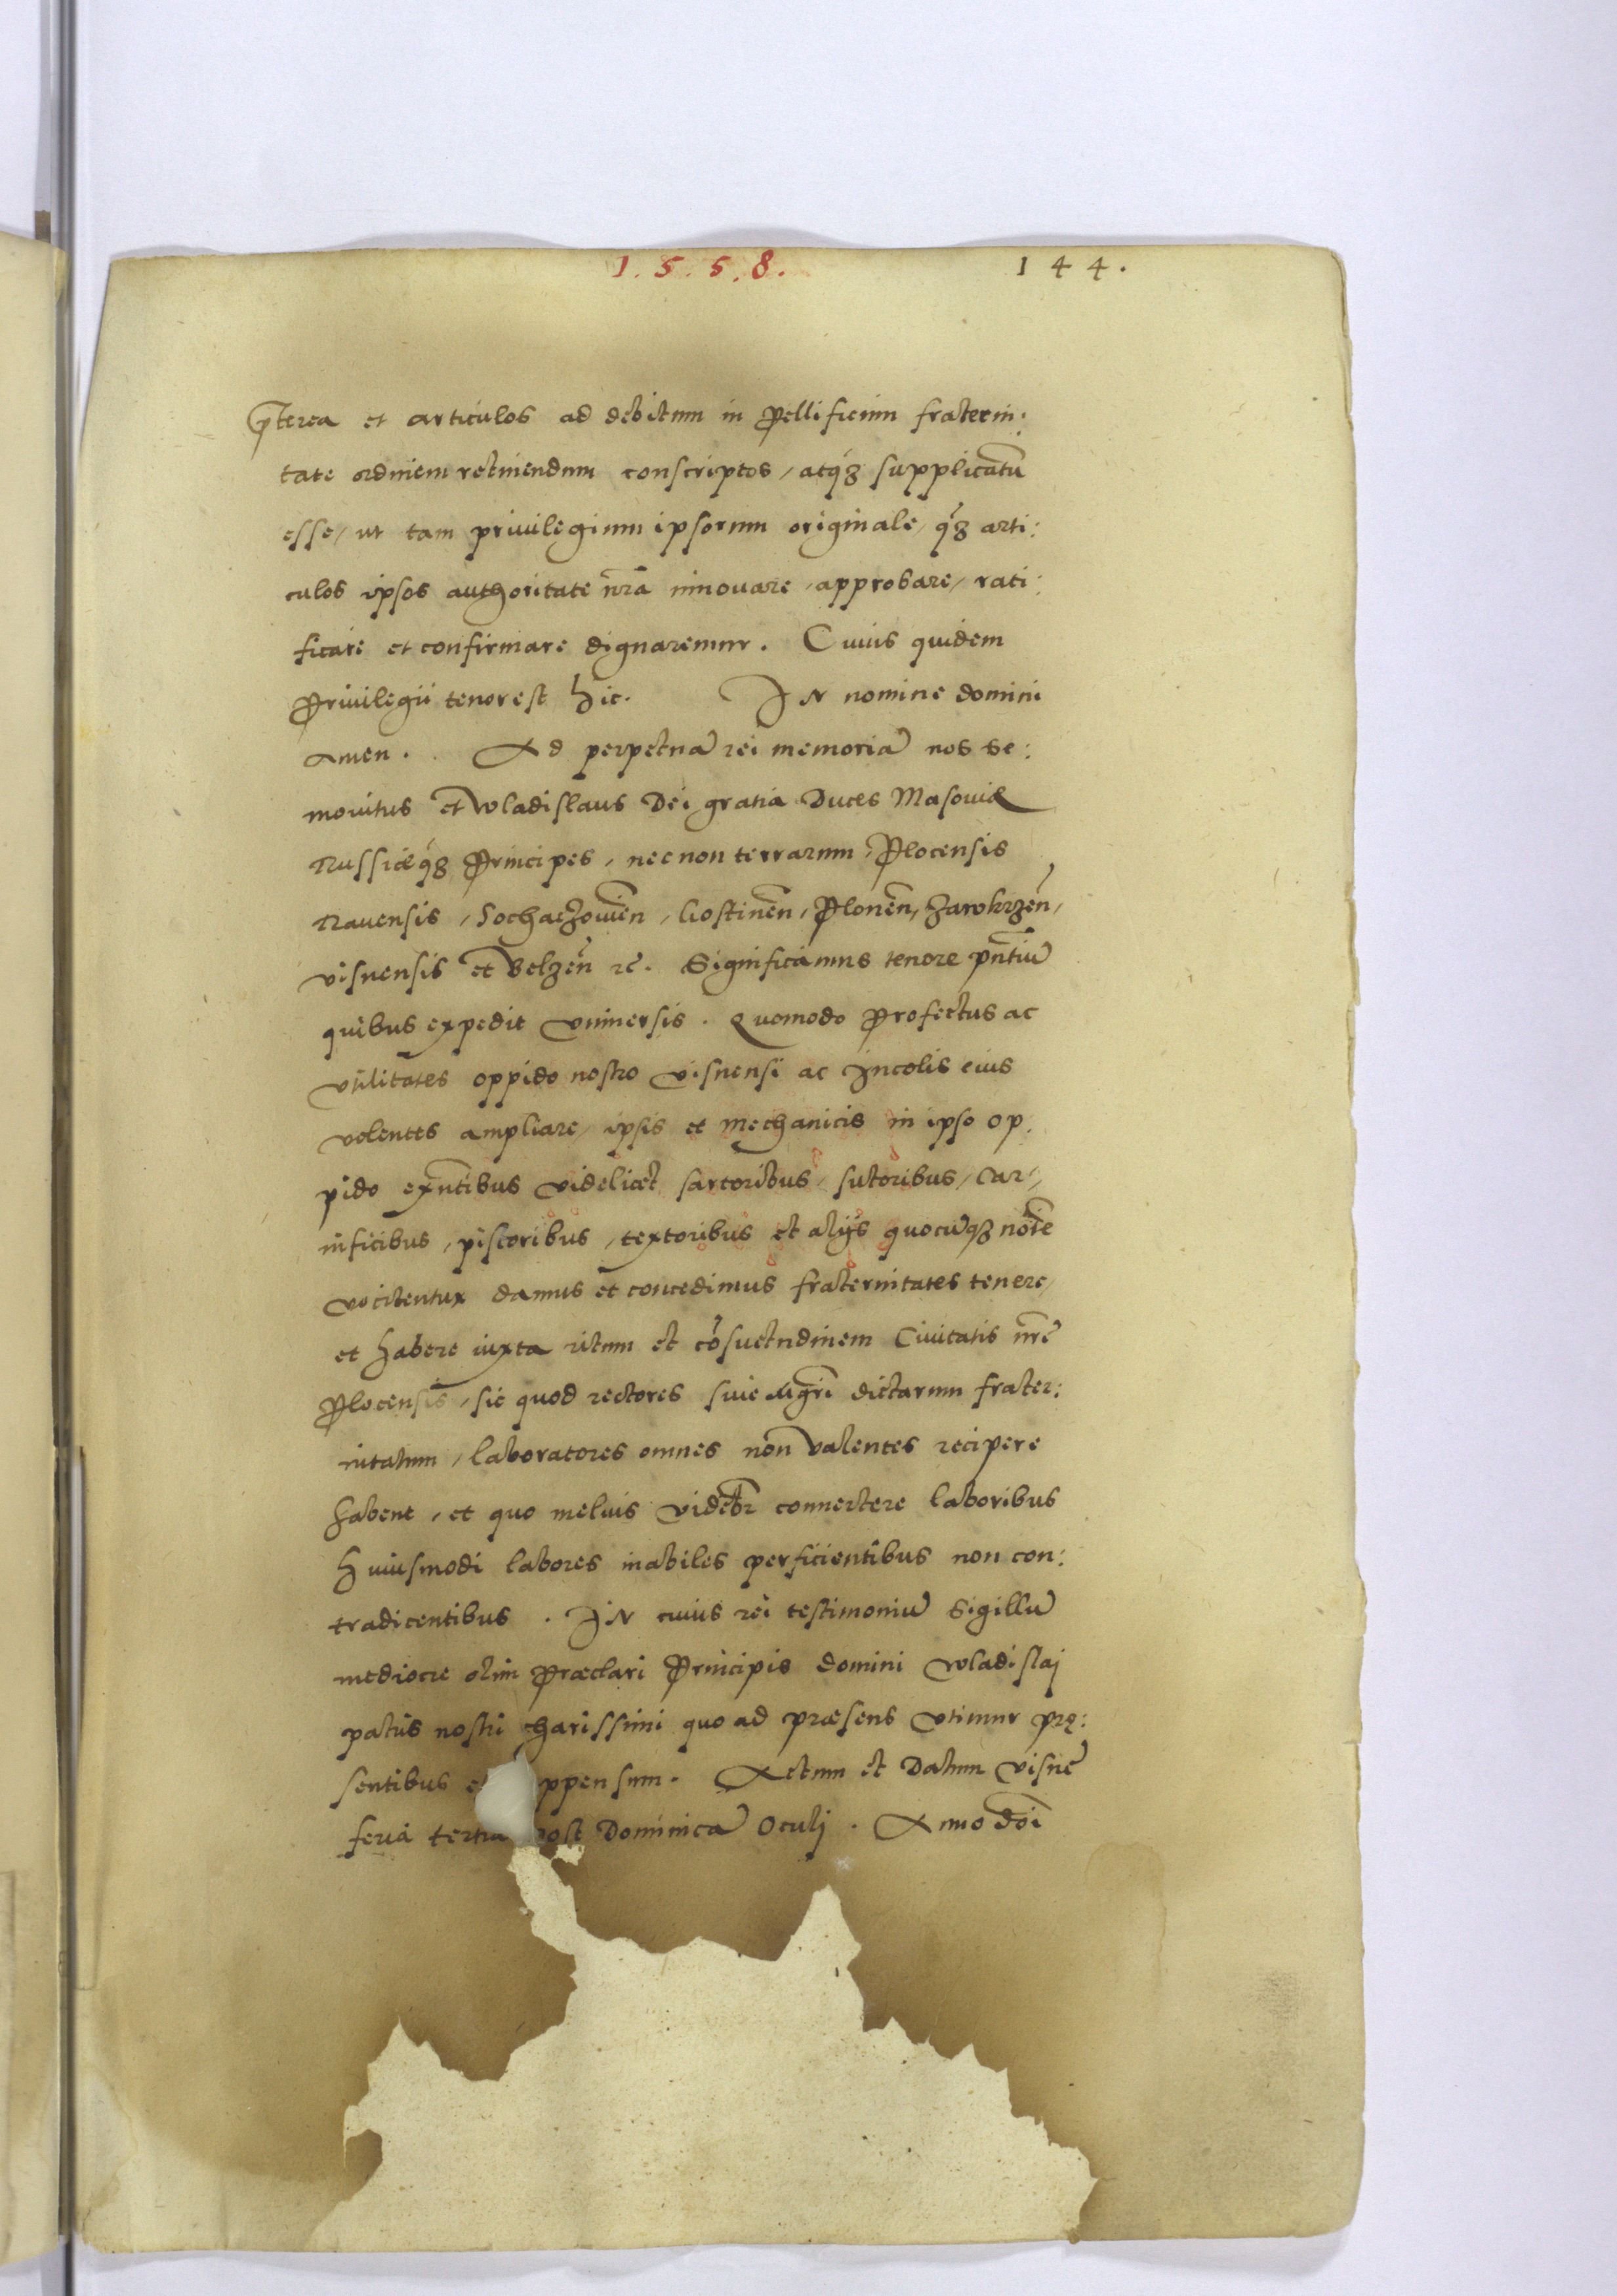 1.5.5.8. 144.
Pͬterea et articulos ad debitum in Pellificum fraterni:
tate ordinem retinendum conscriptos, atq́ꝫ supplicatū
esse, ut tam privilegium ipsorum originale, q̃ꝫ arti:
culos ipsos authoritate nr̄a innouare, approbare, rati:
ficare et confirmare dignaremur. Cuius quidem
Priuilegii tenor est hic. IN nomine domini
amen. Ad perpetuā rei memoriā nos Se:
mouitus et Wladislaus Dei gratia Duces Masouiæ
Russiæq́ꝫ Principes, nec non terrarum, Plocensis
Rauensis, Sochaczouien̄, Gostinen̄, Plonen̄, Zawkrzen̄,
Visnensis et Belzen̄ ꝛc̄. Significamus tenore pn̄tiū
quibus expedit vniuersis. Quomodo Profectus ac
vtilitates oppido nostro Visnensi ac Incolis eius
volentes ampliare, ipsis et Mechanicis in ipso op:
pido exn̄tibus videlicet sartoribus, sutoribus, Car-
nificibus, pistoribus, textoribus et alijs quocūqꝫ noīe
vocitentur damus et concedimus fraternitates tenere,
et habere iuxta ritum et cōsuetudinem Ciuitatis nr̄e
Plocensis, sic quod rectores siue Mgr̄i dictarum frater:
nitatum, laboratores omnes non valentes recipere
habent, et quo melius videbr̄ conuertere laboribus
Huiusmodi labores inabiles perficientibus non con:
tradicentibus. IN cuius rei testimoniū Sigillū
mediocre olim Præclari Principis domini Wladislaj
patris nostri charissimi quo ad præsens vtimur prę:
sentibus e ppensum. Actum et Datum Visne
feria tertia post Dominicā Oculj. Anno doī